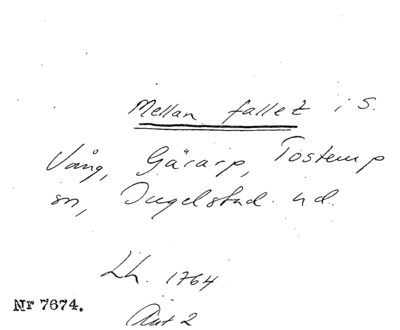 Mellan fallet i S.
Vång, Gärarp, Tostemp
sn, Ingelstad hd.
Lh. 1764
Nr 7674.
Akt 2